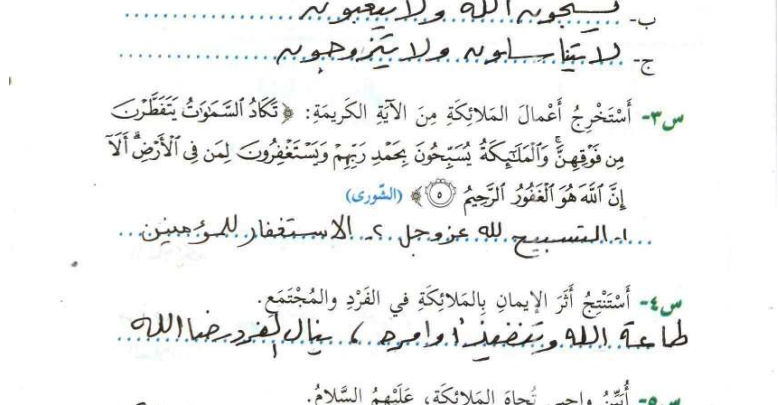 ب- يسبحون الله ولا يتعبون
ج- لا يتناسلون ولا يتزوجون
س٣- أَسْتَخْرِجُ أَعْمالَ المَلائِكَةِ مِنَ الآيَةِ الكَريمَةِ: ﴿ تَكَادُ السَّمَاوَاتُ يَتَفَطَّرْنَ
مِن فَوْقِهِنَّ ۚ وَالْمَلَائِكَةُ يُسَبِّحُونَ بِحَمْدِ رَبِّهِمْ وَيَسْتَغْفِرُونَ لِمَن فِي الْأَرْضِ ۗ أَلَا
إِنَّ اللَّهَ هُوَ الْغَفُورُ الرَّحِيمُ ٥ ﴾ (الشّورى)
١- التسبيح لله عزوجل ٢- الاستغفار للمؤمنين
س٤- أَسْتَنْتِجُ أَثَرَ الإيمانِ بِالمَلائِكَةِ في الفَرْدِ والمُجْتَمَعِ.
طاعة الله وتنفيذ أوامره ، ينال الفرد رضا الله
س٥- أُبَيِّنُ واجبي تُجاهَ المَلائِكَةِ، عَلَيْهِمُ السَّلامُ.